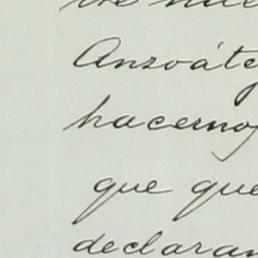 Anzoáte
hacernos
que que
declaran